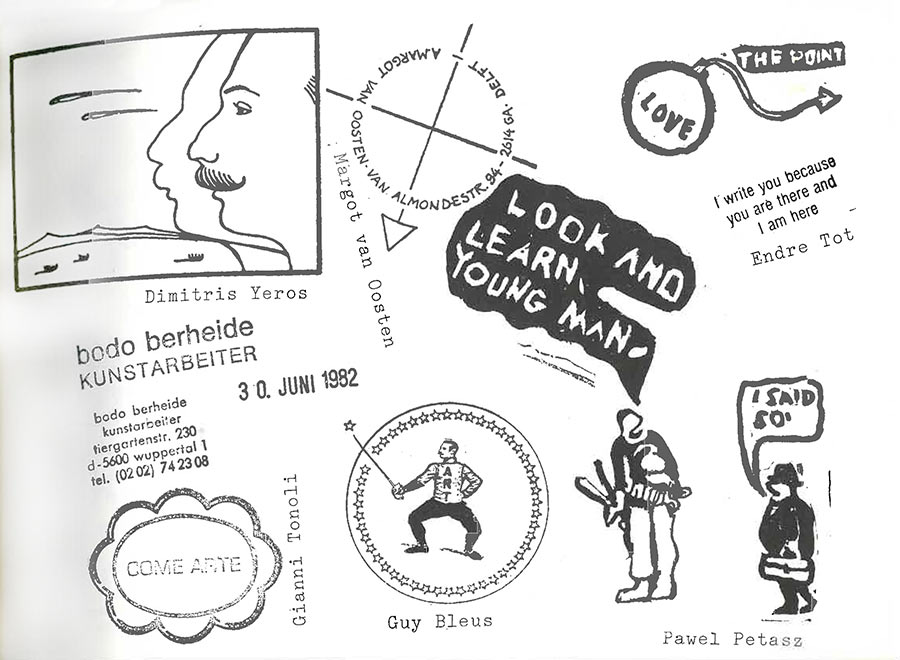 Dimitris Yeros
A.MARGOT VAN OOSTEN-VAN ALMONDESTR. 94-2614 GA. DELFT
Margot van Oosten
THE POINT
LOVE
I write you because
you are there and
I am here
Endre Tot
LOOK AND
LEARN,
YOUNG MAN
bodo berheide
KUNSTARBEITER
30. JUNI 1982
bodo berheide
kunstarbeiter
tiergartenstr. 230
d-5600 wuppertal 1
tel. (02 02) 74 23 08
COME ARTE
Gianni Tonoli
ART
Guy Bleus
I SAID
SO!
Pawel Petasz